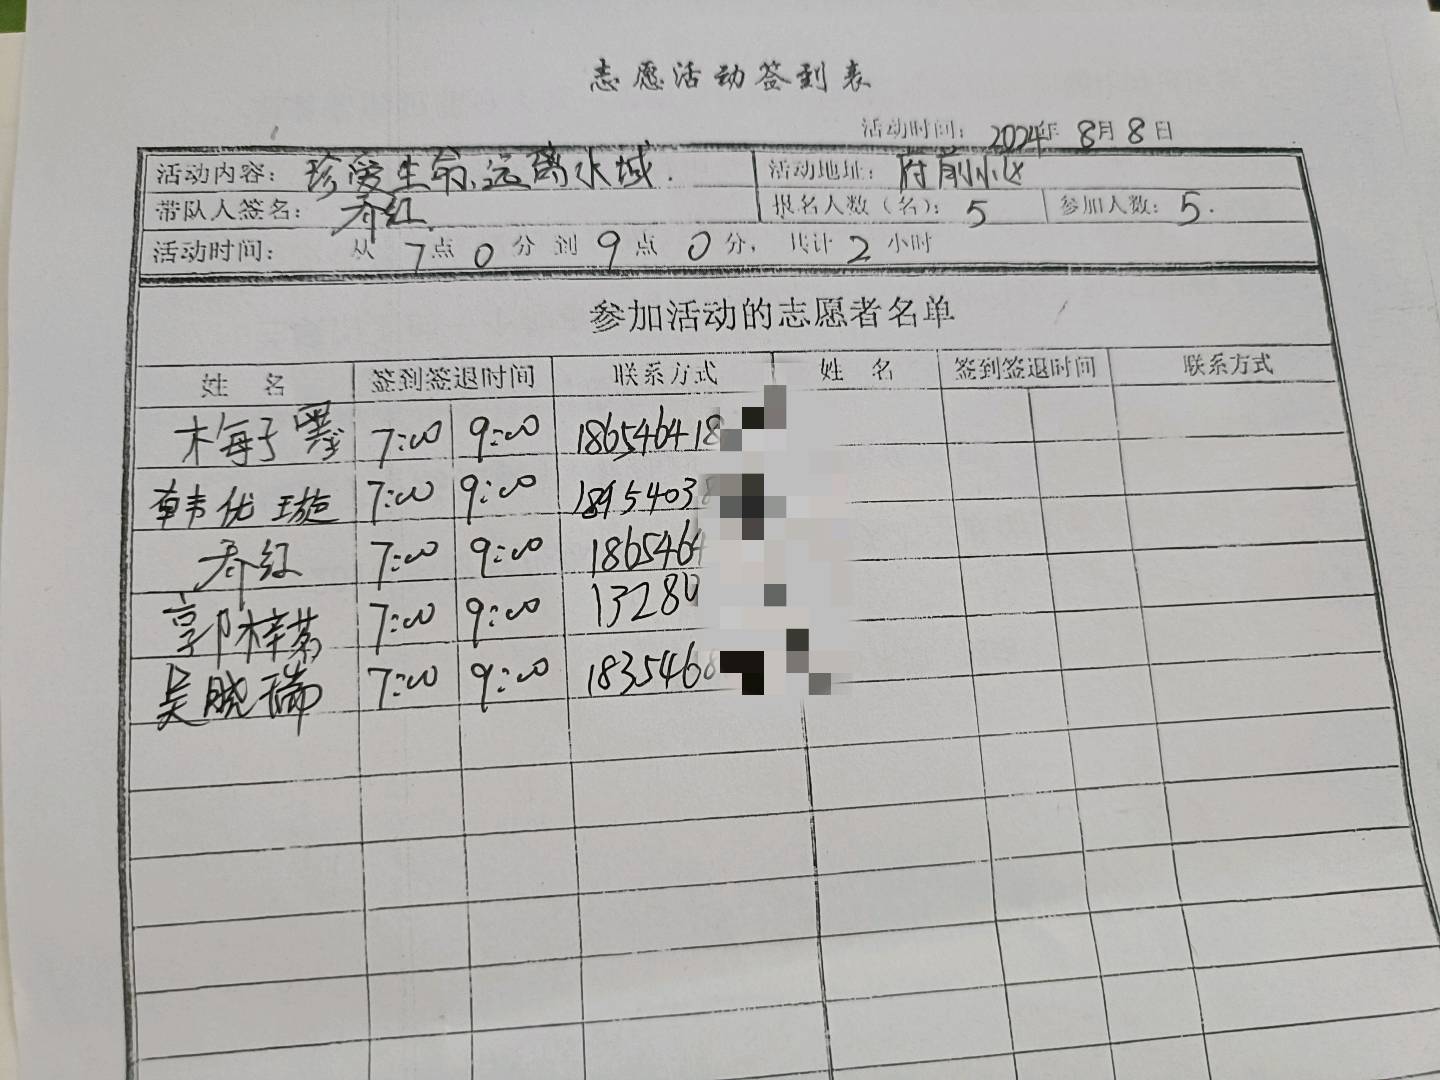 志愿活动签到表
活动时间: 2024年 8月 8日
活动内容: 珍爱生命、远离水域. 活动地址: 府前小区
带队人签名: 乔红 报名人数(名): 5 参加人数: 5.
活动时间: 从 7点 0分 到 9点 0分, 共计 2小时
参加活动的志愿者名单
姓 名 签到签退时间 联系方式 姓 名 签到签退时间 联系方式
梅子墨 7:00 9:00 186546418
韩优璇 7:00 9:00 18954038
乔红 7:00 9:00 1865464
郭梓茗 7:00 9:00 13280
吴晓瑞 7:00 9:00 18354668